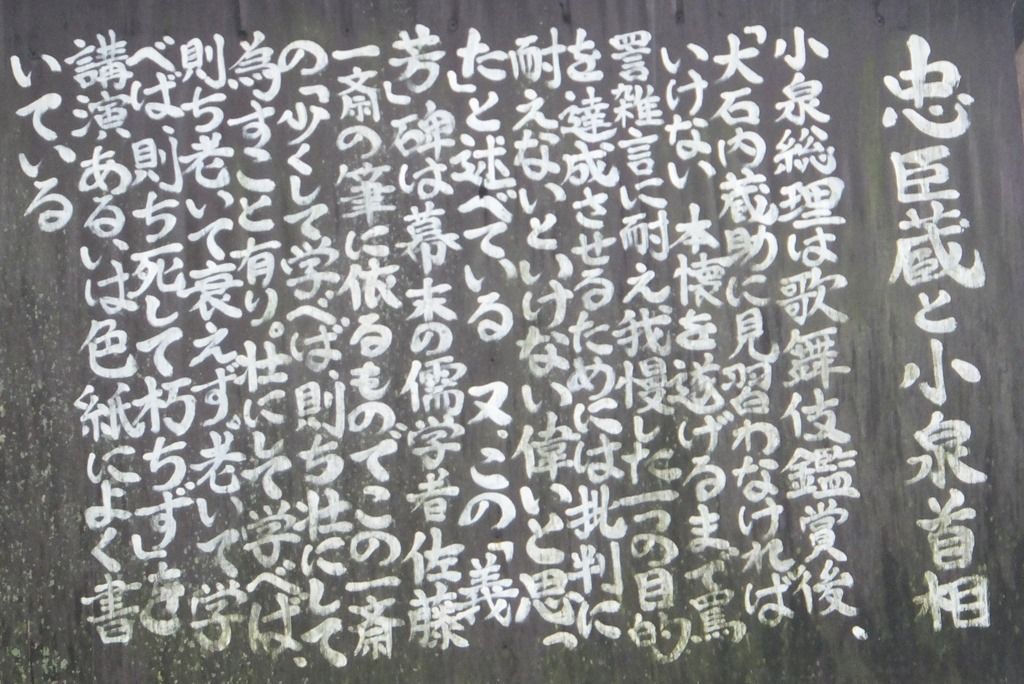 忠臣蔵と小泉首相
小泉総理は歌舞伎鑑賞後、
「大石内蔵助に見習わなければ
いけない 本懐を遂げるまで罵
詈雑言に耐え我慢した一つの目的
を達成させるためには批判に
耐えないといけない偉いと思っ
た」と述べている 又、この「義
芳」碑は幕末の儒学者佐藤
一斎の筆に依るものでこの一斎
の「少くして学べば、則ち壮にして
為すこと有り。壮にして学べば、
則ち老いて衰えず。老いて学
べば、則ち死して朽ちず」を
講演あるいは色紙によく書
いている